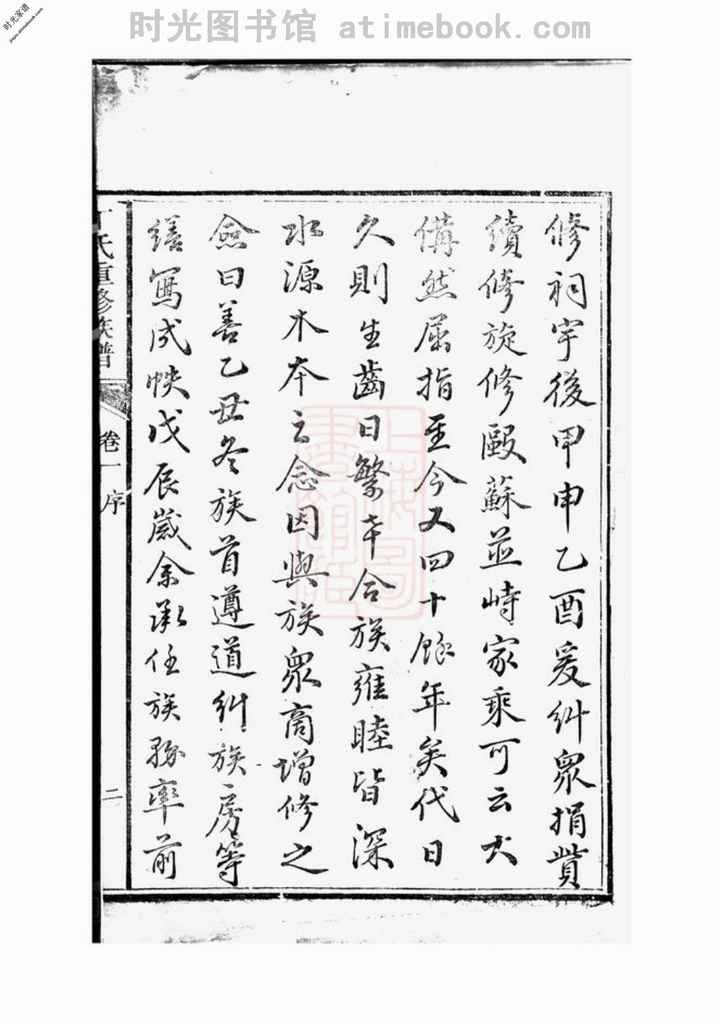 时光图书馆 atimebook.com
时光家谱
www.atimebook.com
修祠宇後甲申乙酉爰糾眾捐貲
續修旋修毆蘇並峙家乘可云大
備然屈指至今又四十餘年矣代日
久則生齒日繁幸合族雍睦皆深
水源木本之念因與族眾商增修之
僉曰善乙丑冬族首遵道糾族房等
繕寫成帙戊辰歲余承任族務率前
丁氏重修族譜 卷一 序 二